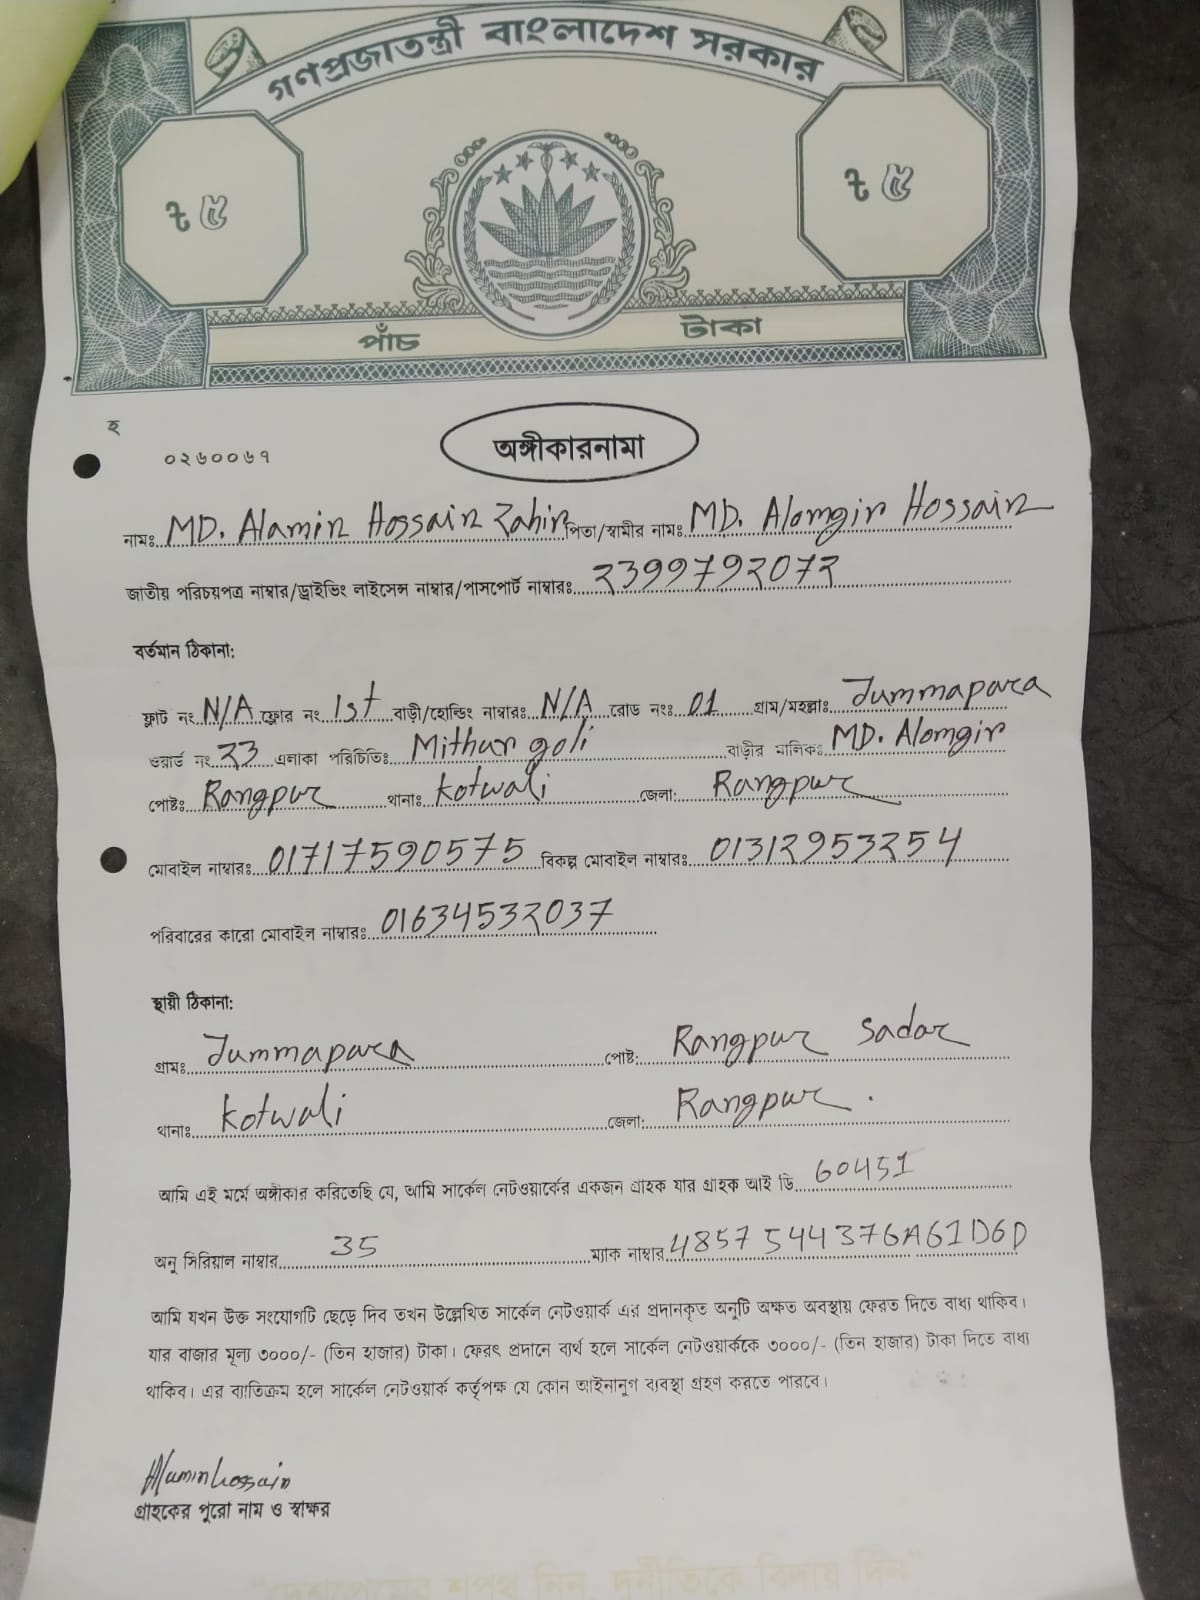 গণপ্রজাতন্ত্রী বাংলাদেশ সরকার
৳ ৫ ৳ ৫
পাঁচ টাকা
হ
০২৬০০৬৭
অঙ্গীকারনামা
নামঃ MD. Alamin Hossain Zahin পিতা/স্বামীর নামঃ MD. Alomgir Hossain
জাতীয় পরিচয়পত্র নাম্বার/ড্রাইভিং লাইসেন্স নাম্বার/পাসপোর্ট নাম্বারঃ 2399792072
বর্তমান ঠিকানা:
ফ্লাট নং N/A ফ্লোর নং 1st বাড়ী/হোল্ডিং নাম্বারঃ N/A রোড নংঃ 01 গ্রাম/মহল্লাঃ Jummapara
ওয়ার্ড নং 23 এলাকা পরিচিতিঃ Mithur goli বাড়ীর মালিকঃ MD. Alomgir
পোষ্টঃ Rangpur থানাঃ Kotwali জেলা: Rangpur
মোবাইল নাম্বারঃ 01717590575 বিকল্প মোবাইল নাম্বারঃ 01312953254
পরিবারের কারো মোবাইল নাম্বারঃ 01634532037
স্থায়ী ঠিকানা:
গ্রামঃ Jummapara পোষ্ট: Rangpur Sadar
থানাঃ Kotwali জেলা: Rangpur.
আমি এই মর্মে অঙ্গীকার করিতেছি যে, আমি সার্কেল নেটওয়ার্কের একজন গ্রাহক যার গ্রাহক আই ডি 60451
অনু সিরিয়াল নাম্বার 35 ম্যাক নাম্বার 4857544376A61D6D
আমি যখন উক্ত সংযোগটি ছেড়ে দিব তখন উল্লেখিত সার্কেল নেটওয়ার্ক এর প্রদানকৃত অনুটি অক্ষত অবস্থায় ফেরত দিতে বাধ্য থাকিব।
যার বাজার মূল্য ৩০০০/- (তিন হাজার) টাকা। ফেরৎ প্রদানে ব্যর্থ হলে সার্কেল নেটওয়ার্ককে ৩০০০/- (তিন হাজার) টাকা দিতে বাধ্য
থাকিব। এর ব্যতিক্রম হলে সার্কেল নেটওয়ার্ক কর্তৃপক্ষ যে কোন আইনানুগ ব্যবস্থা গ্রহণ করতে পারবে।
Alamin Hossain
গ্রাহকের পুরো নাম ও স্বাক্ষর
"দেশপ্রেমের শপথ নিন, দুর্নীতিকে বিদায় দিন"